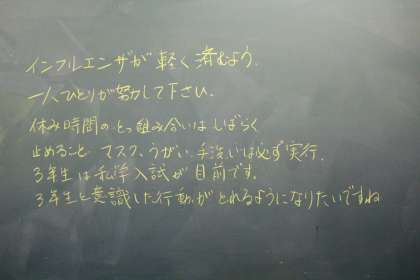 インフルエンザが軽く済むよう.
一人ひとりが努力して下さい.
休み時間のとっ組み合いはしばらく
止めること マスク、うがい、手洗いは必ず実行.
3年生は私学入試が目前です.
3年生を意識した行動がとれるようになりたいですね